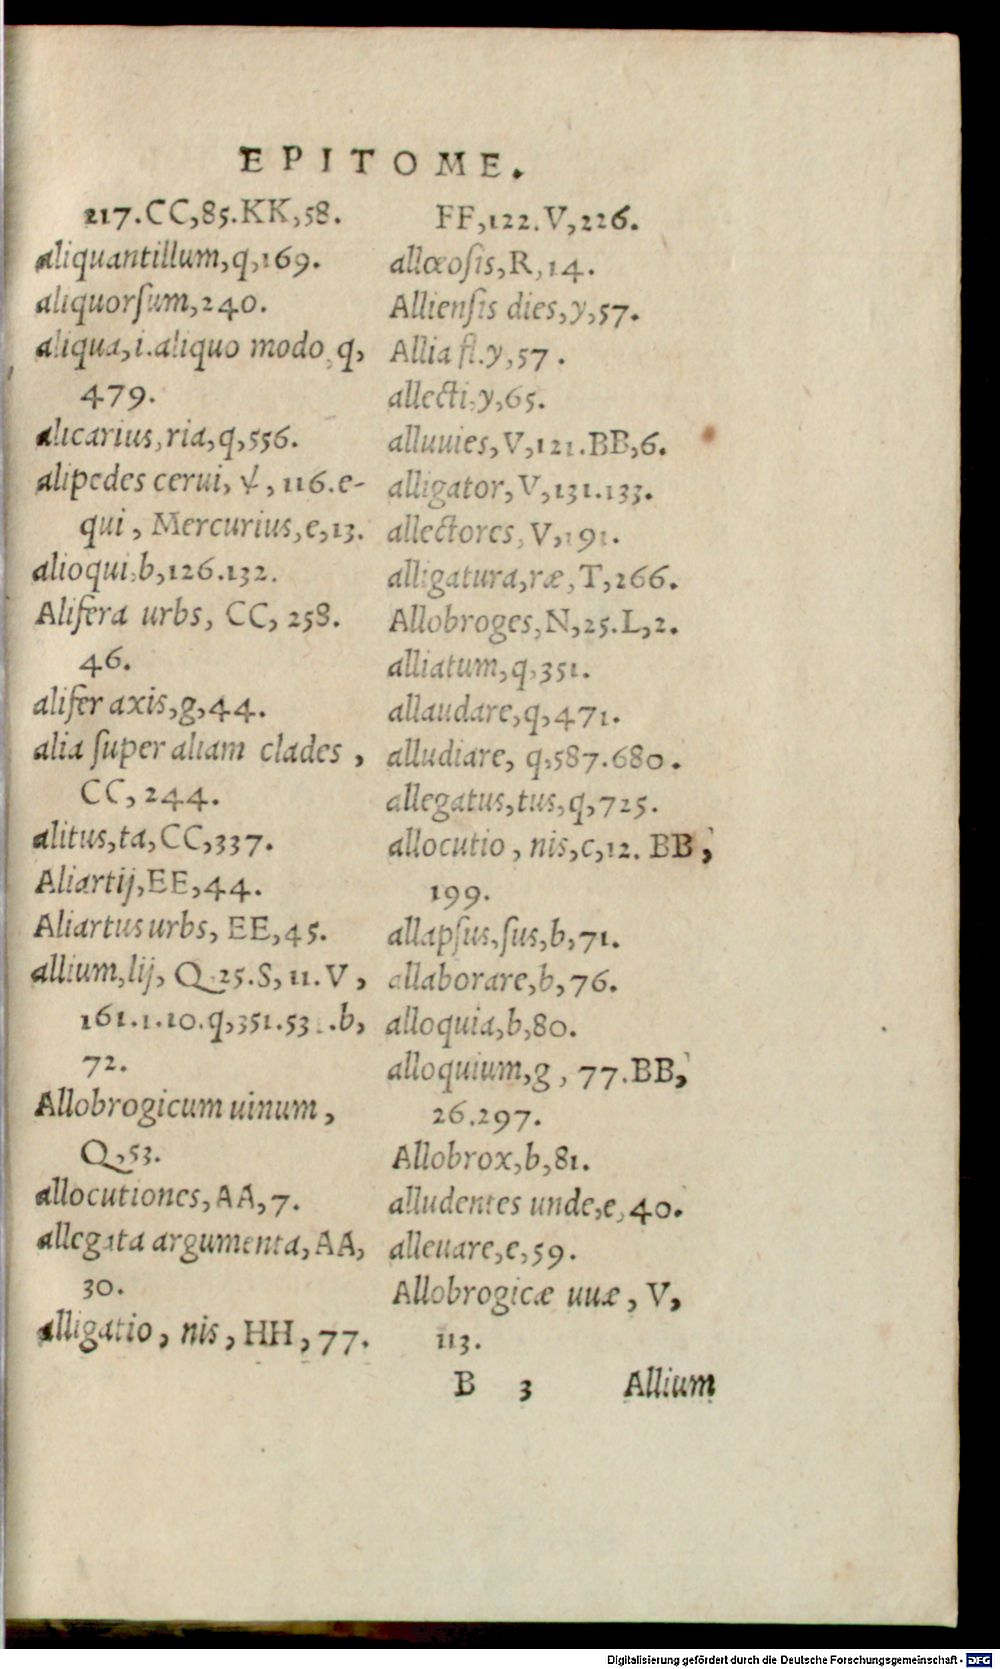 EPITOME.
217.CC,85.KK,58.
aliquantillum,q,169.
aliquorſum,240.
aliqua,i.aliquo modo,q,
479.
alicarius,ria,q,556.
alipedes cerui, ,116.e-
qui, Mercurius,e,13.
alioqui,b,126.132.
Alifera urbs, CC, 258.
46.
alifer axis,g,44.
alia ſuper aliam clades,
CC,244.
alitus,ta,CC,337.
Aliartij,EE,44.
Aliartus urbs, EE,45.
allium,lij, Q.25.S,11.V,
161.1.10.q,351.53 .b,
72.
Allobrogicum uinum,
Q,53.
allocutiones,AA,7.
allegata argumenta,AA,
30.
alligatio, nis, HH, 77.
FF,122.V,226.
allœoſis,R,14.
Allienſis dies,y,57.
Allia fl.y,57.
allecti,y,65.
alluuies,V,121.BB,6.
alligator,V,131.133.
allectores,V,191.
alligatura,ræ,T,266.
Allobroges,N,25.L,2.
alliatum,q,351.
allaudare,q,471.
alludiare, q,587.680.
allegatus,tus,q,725.
allocutio, nis,c,12. BB,
199.
allapſus,ſus,b,71.
allaborare,b,76.
alloquia,b,80.
alloquium,g, 77.BB,
26.297.
Allobrox,b,81.
alludentes unde,e,40.
alleuare,e,59.
Allobrogicæ uuæ, V,
113.
B 3 Allium
Digitalisierung gefördert durch die Deutsche Forschungsgemeinschaft - DFG